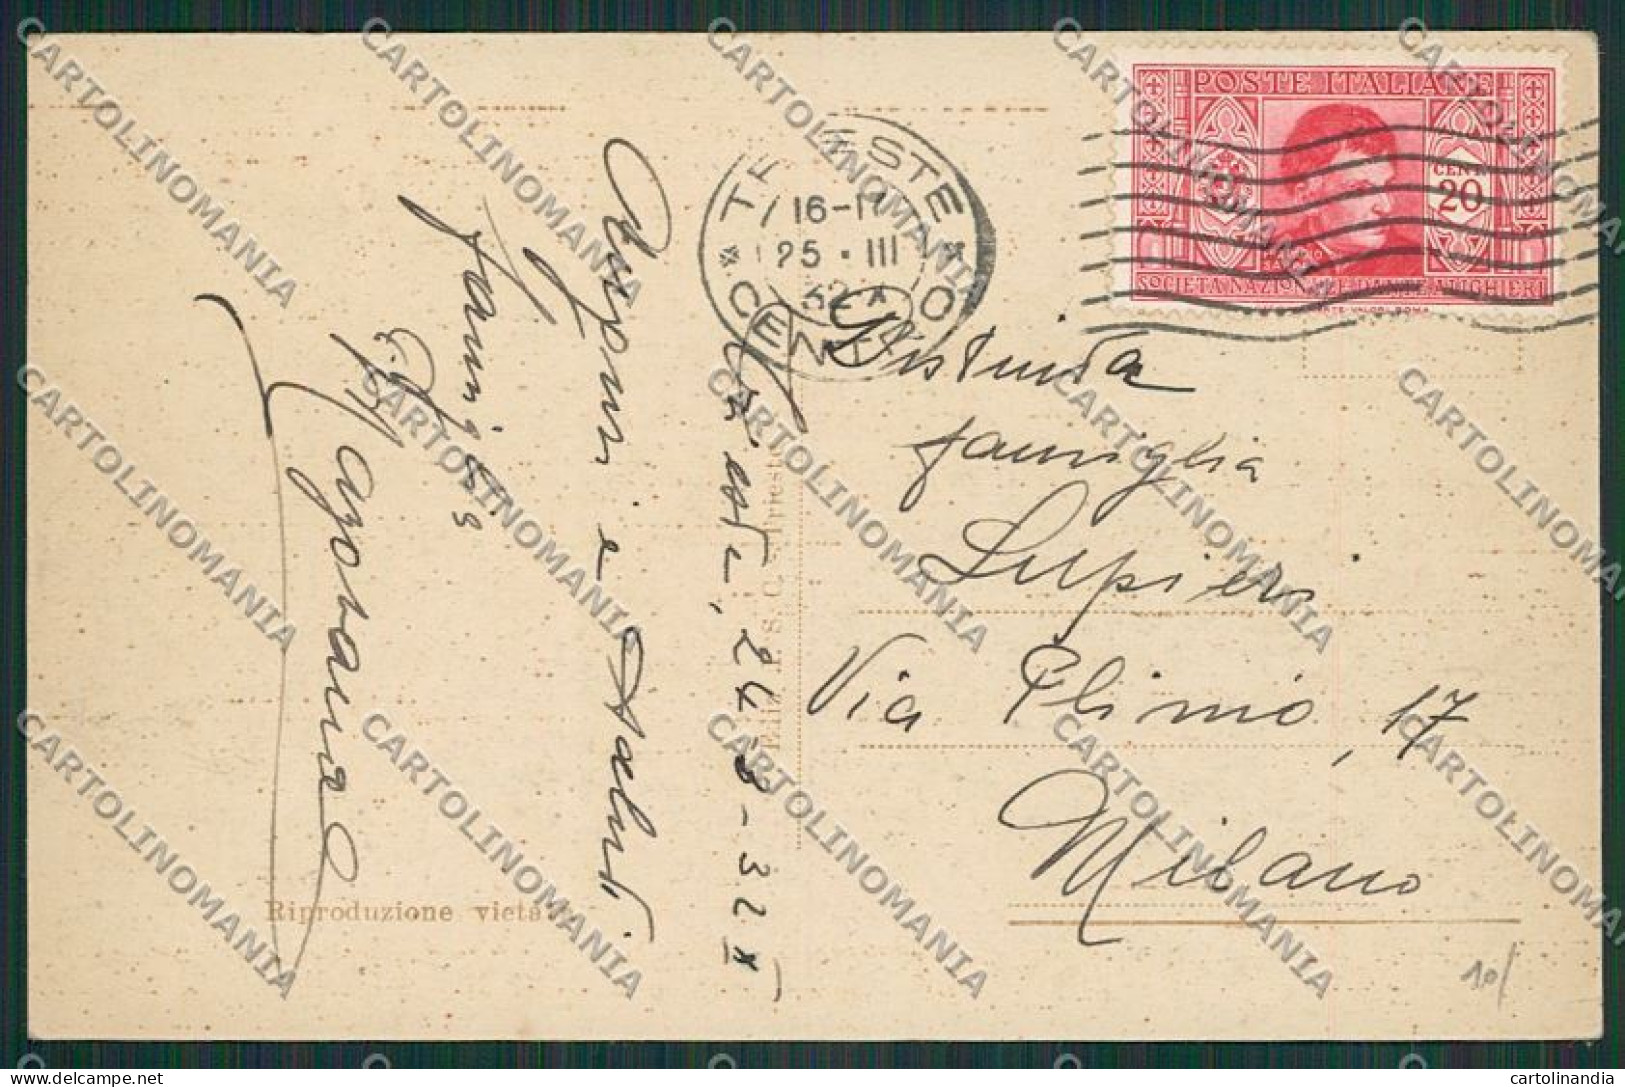 POSTE ITALIANE
CENT
20
SOCIETÀ NAZIONALE DANTE ALIGHIERI
TRIESTE
16-17
25 · III
32 X
CENTRO
Distinta
famiglia
Lupieri
Via Plinio, 17
Milano
Trieste, 24-3-32 X
Auguri e saluti
famiglia
Riproduzione vietata
CARTOLINOMANIA
cartolinandia